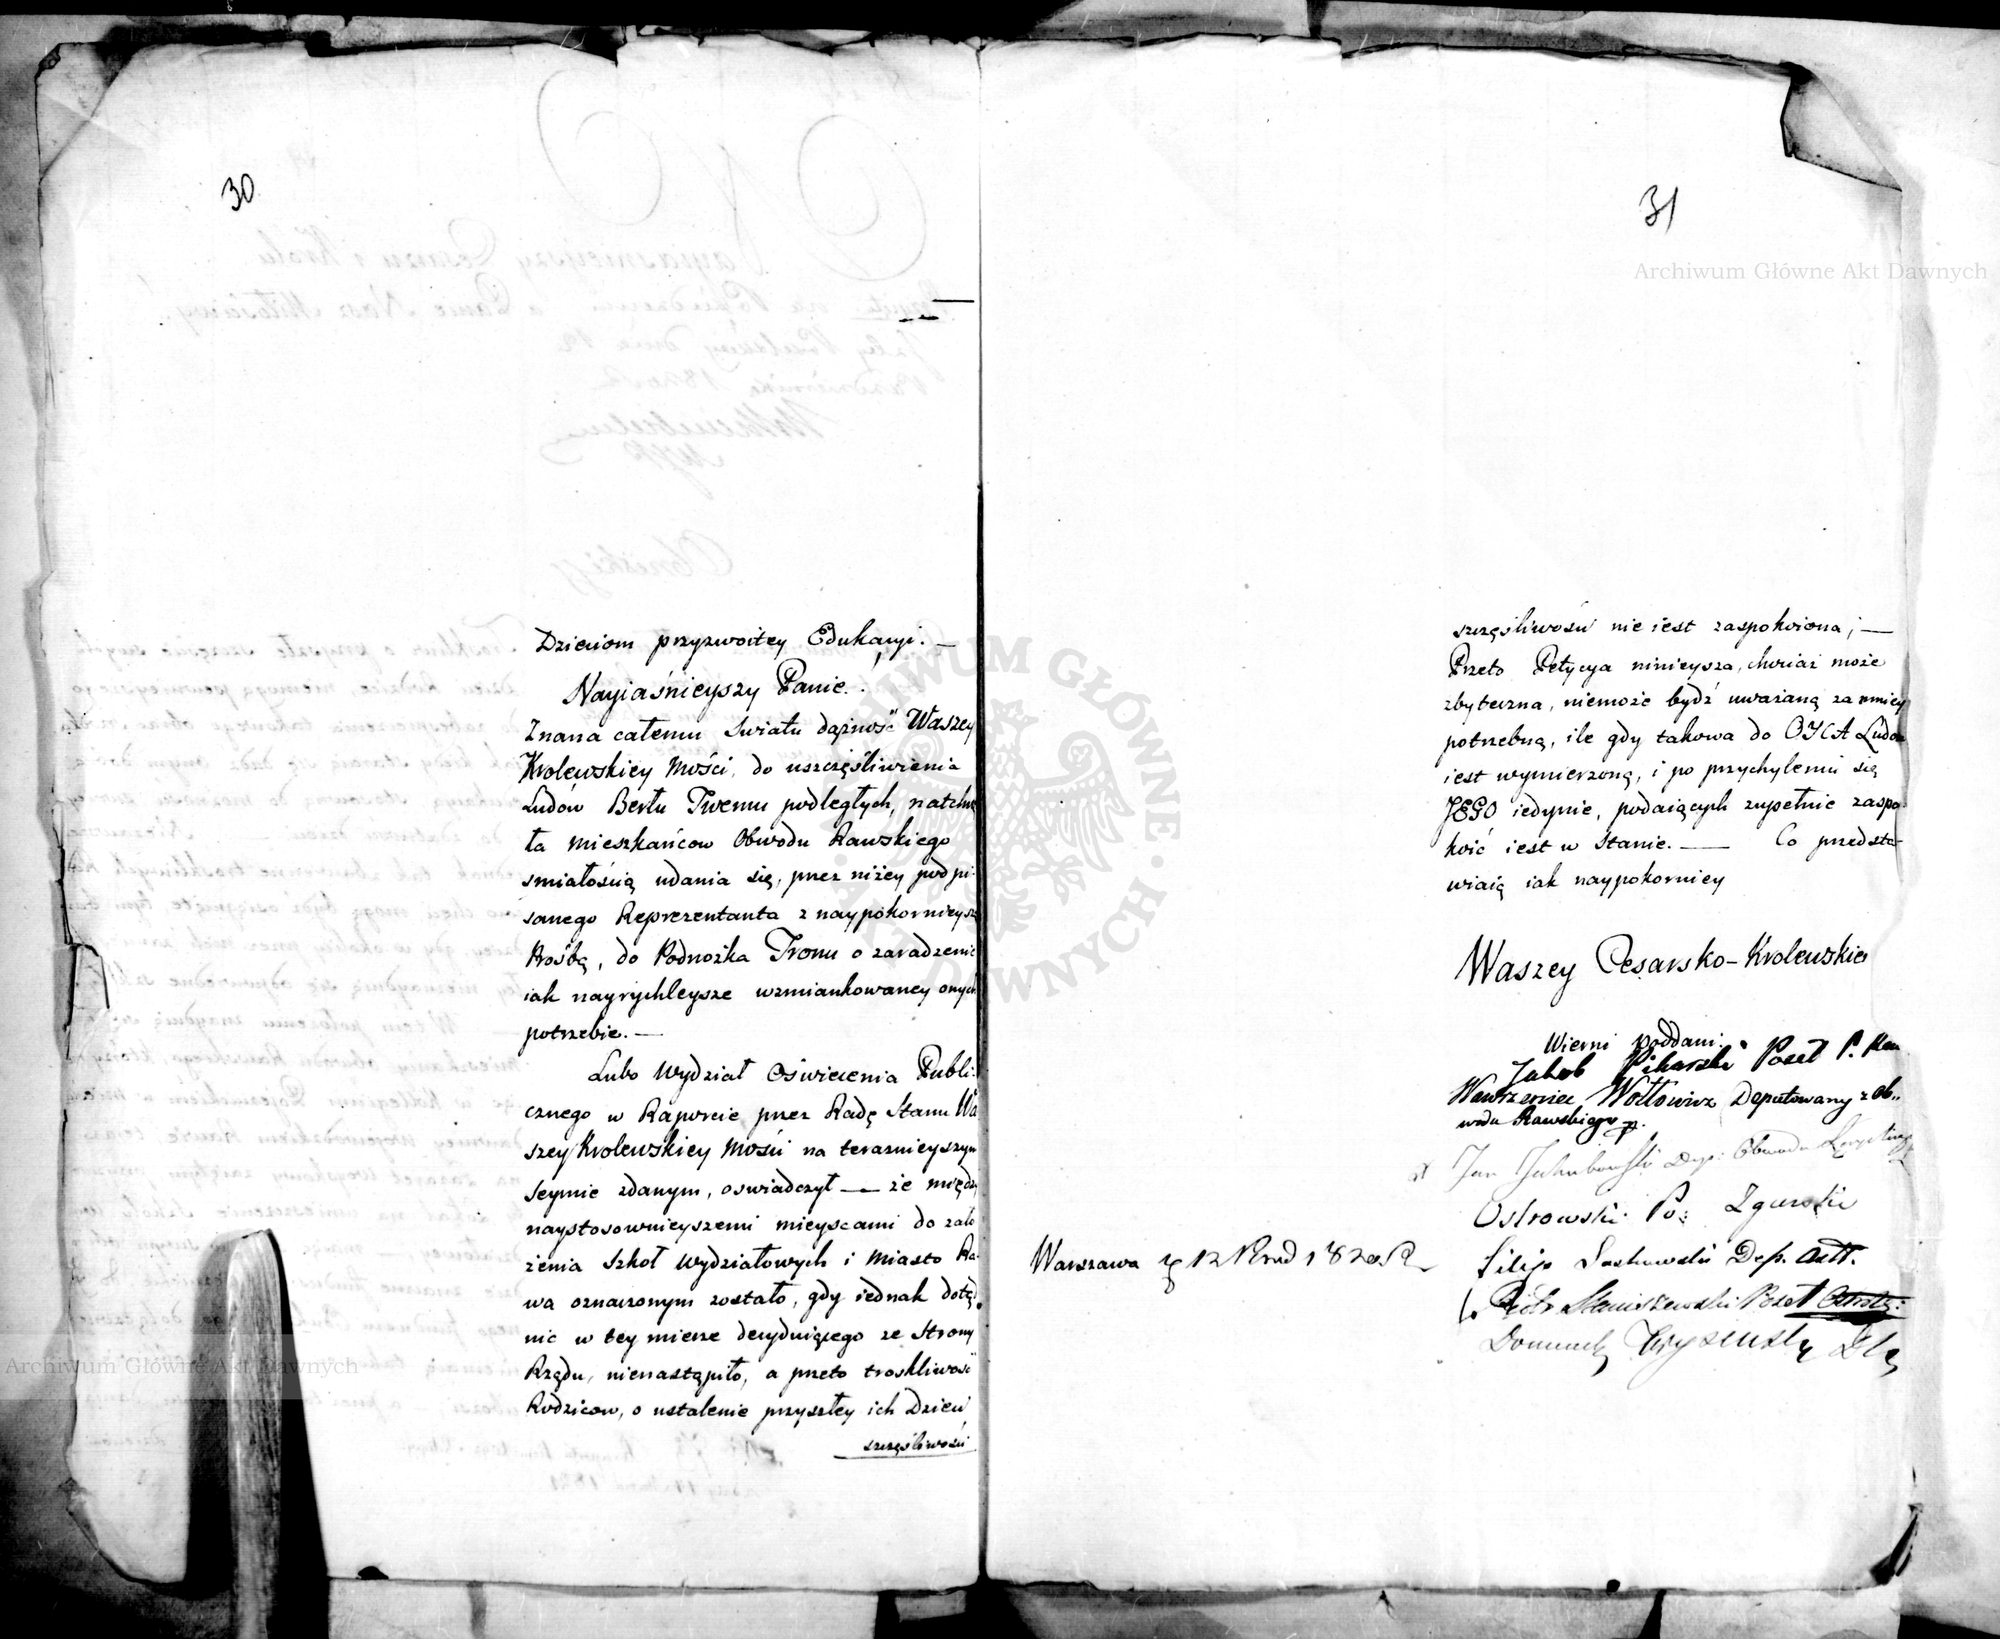 30
Dzieciom przyzwoitey Edukacyi. —
Nayiaśnieyszy Panie!
Znana całemu Swiatu dążność Waszey
Krolewskiey Mości, do uszczęśliwienia
Ludów Berłu Twemu podległych, natchnę
ła mieszkańcow Obwodu Rawskiego
smiałością udania się, przez niżey podpi-
sanego Reprezentanta z naypokornieysz
Prośbą, do Podnożka Tronu o zaradzenie
iak nayrychleysze wzmiankowaney onych
potrzebie. —
Lubo Wydział Oświecenia Publi-
cznego w Raporcie przez Radę Stanu Wa
szey Krolewskiey Mości na teraznieyszym
Seymie zdanym, oswiadczył — że między
naystosownieyszemi mieyscami do zało
żenia Szkoł Wydziałowych i Miasto Ra-
wa oznaczonym zostało, gdy iednak dotąd
nic w tey mierze decyduiącego ze Strony
Rządu, nienastąpiło, a przeto troskliwość
Rodzicow, o ustalenie przyszłey ich Dzieci
szczęśliwości
31
szczęśliwości nie iest zaspokoiona; —
Przeto Petycya ninieysza, chociaż może
zbyteczna, niemoże bydź uważaną za mniey
potrzebną, ile gdy takowa do OYCA Ludow
iest wymierzoną, i po przychyleniu się
JEGO iedynie, podaiących zupełnie zaspo-
koić iest w Stanie. — Co przedsta-
wiaią iak naypokorniey
Waszey Cesarsko-Krolewskiey
Wierni poddani:
Jakob Pikarski Poseł P.
Wawrzeniec Wołłowicz Deputowany z Ob-
wodu Rawskiego
Jan Jakubowski Dep: Obwodu
Ostrowski Po: Zgierski
Filip Dep.
Warszawa d 12 1820 R
Piotr Staniszewski Poseł
Archiwum Główne Akt Dawnych
Archiwum Główne Akt Dawnych
ARCHIWUM GŁÓWNE AKT DAWNYCH